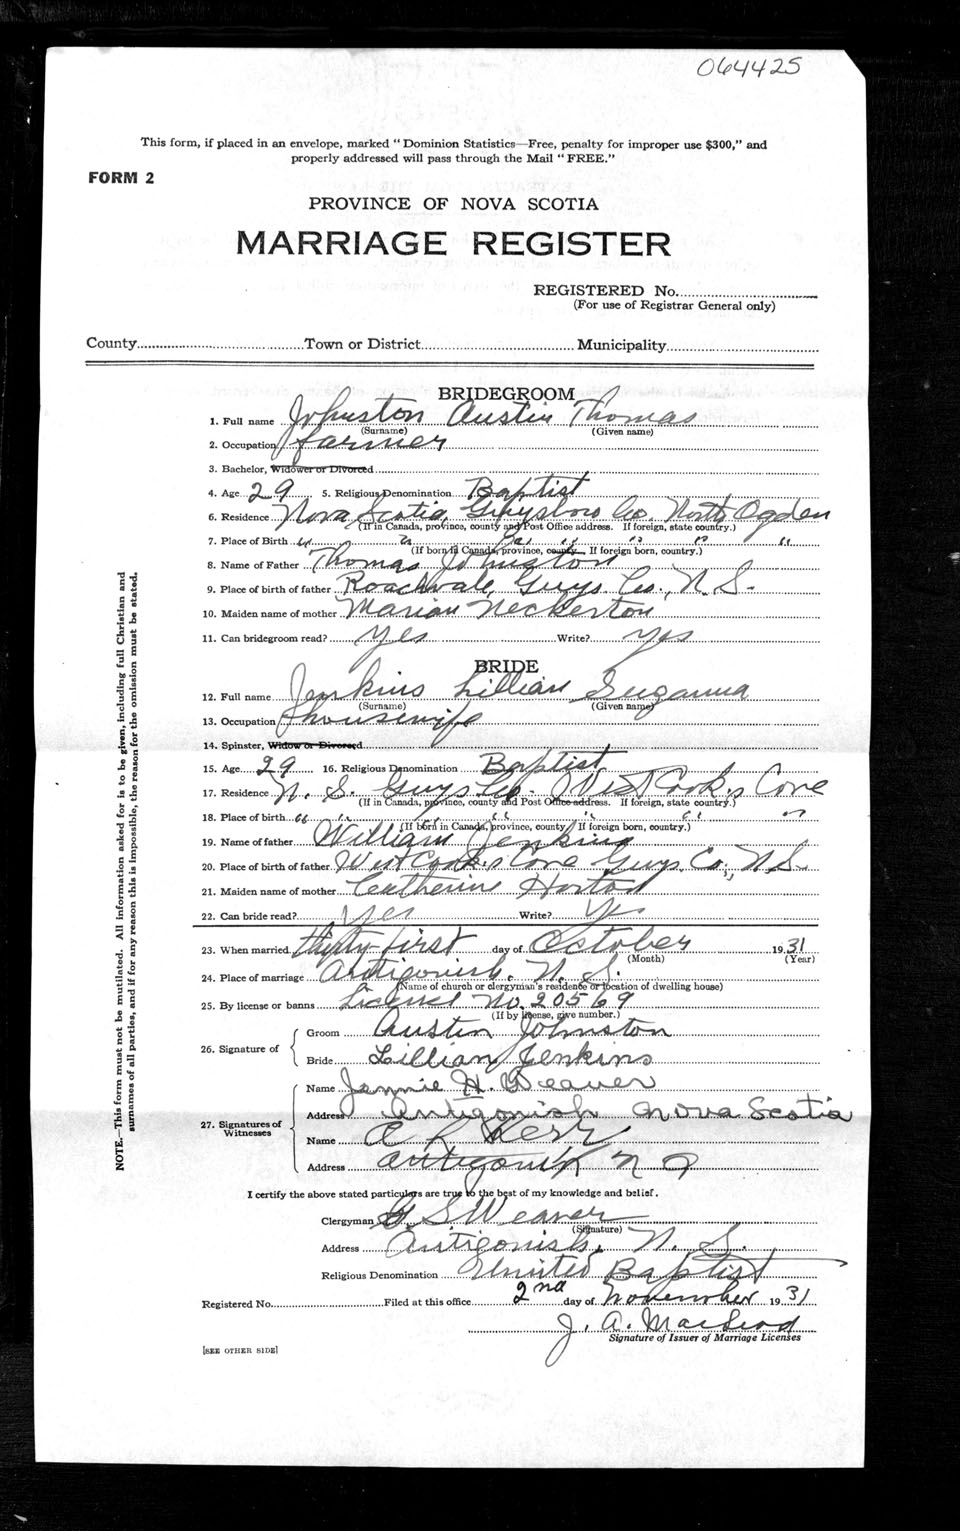 064425
This form, if placed in an envelope, marked "Dominion Statistics—Free, penalty for improper use $300," and
properly addressed will pass through the Mail "FREE."
FORM 2
PROVINCE OF NOVA SCOTIA
MARRIAGE REGISTER
REGISTERED No.
(For use of Registrar General only)
County Town or District Municipality
BRIDEGROOM
1. Full name Johnston Austin Thomas
(Surname) (Given name)
2. Occupation farmer
3. Bachelor, Widower or Divorced
4. Age 29 5. Religious Denomination Baptist
6. Residence Nova Scotia, Guysboro Co. North Ogden
(If in Canada, province, county and Post Office address. If foreign, state country.)
7. Place of Birth " " " " " "
(If born in Canada, province, county. If foreign born, country.)
8. Name of Father Thomas Johnston
9. Place of birth of father Roachvale, Guys. Co., N.S.
10. Maiden name of mother Marian
11. Can bridegroom read? Yes Write? Yes
BRIDE
12. Full name Jenkins Lillian Suzanna
(Surname) (Given name)
13. Occupation housewife
14. Spinster, Widow or Divorced
15. Age 29 16. Religious Denomination Baptist
17. Residence N. S. Guys Co. West Cook's Cove
(If in Canada, province, county and Post Office address. If foreign, state country.)
18. Place of birth " " " " " "
(If born in Canada, province, county. If foreign born, country.)
19. Name of father William Jenkins
20. Place of birth of father West Cook's Cove Guys. Co., N.S.
21. Maiden name of mother Catherine Horton
22. Can bride read? Yes Write? Yes
23. When married thirty-first day of October 1931
(Month) (Year)
24. Place of marriage Antigonish, N. S.
(Name of church or clergyman's residence or location of dwelling house)
25. By license or banns License No. 20569
(If by license, give number.)
26. Signature of Groom Austin Johnston
Bride Lillian Jenkins
27. Signatures of Witnesses Name Jennie H. Weaver
Address Antigonish Nova Scotia
Name A L Kerr
Address Antigonish N S
I certify the above stated particulars are true to the best of my knowledge and belief.
Clergyman G S Weaver
(Signature)
Address Antigonish, N. S.
Religious Denomination United Baptist
Registered No. Filed at this office 2nd day of November 1931
J. A. MacLeod
Signature of Issuer of Marriage Licenses
[SEE OTHER SIDE]
NOTE.—This form must not be mutilated. All information asked for is to be given, including full Christian and
surnames of all parties, and if for any reason this is impossible, the reason for the omission must be stated.